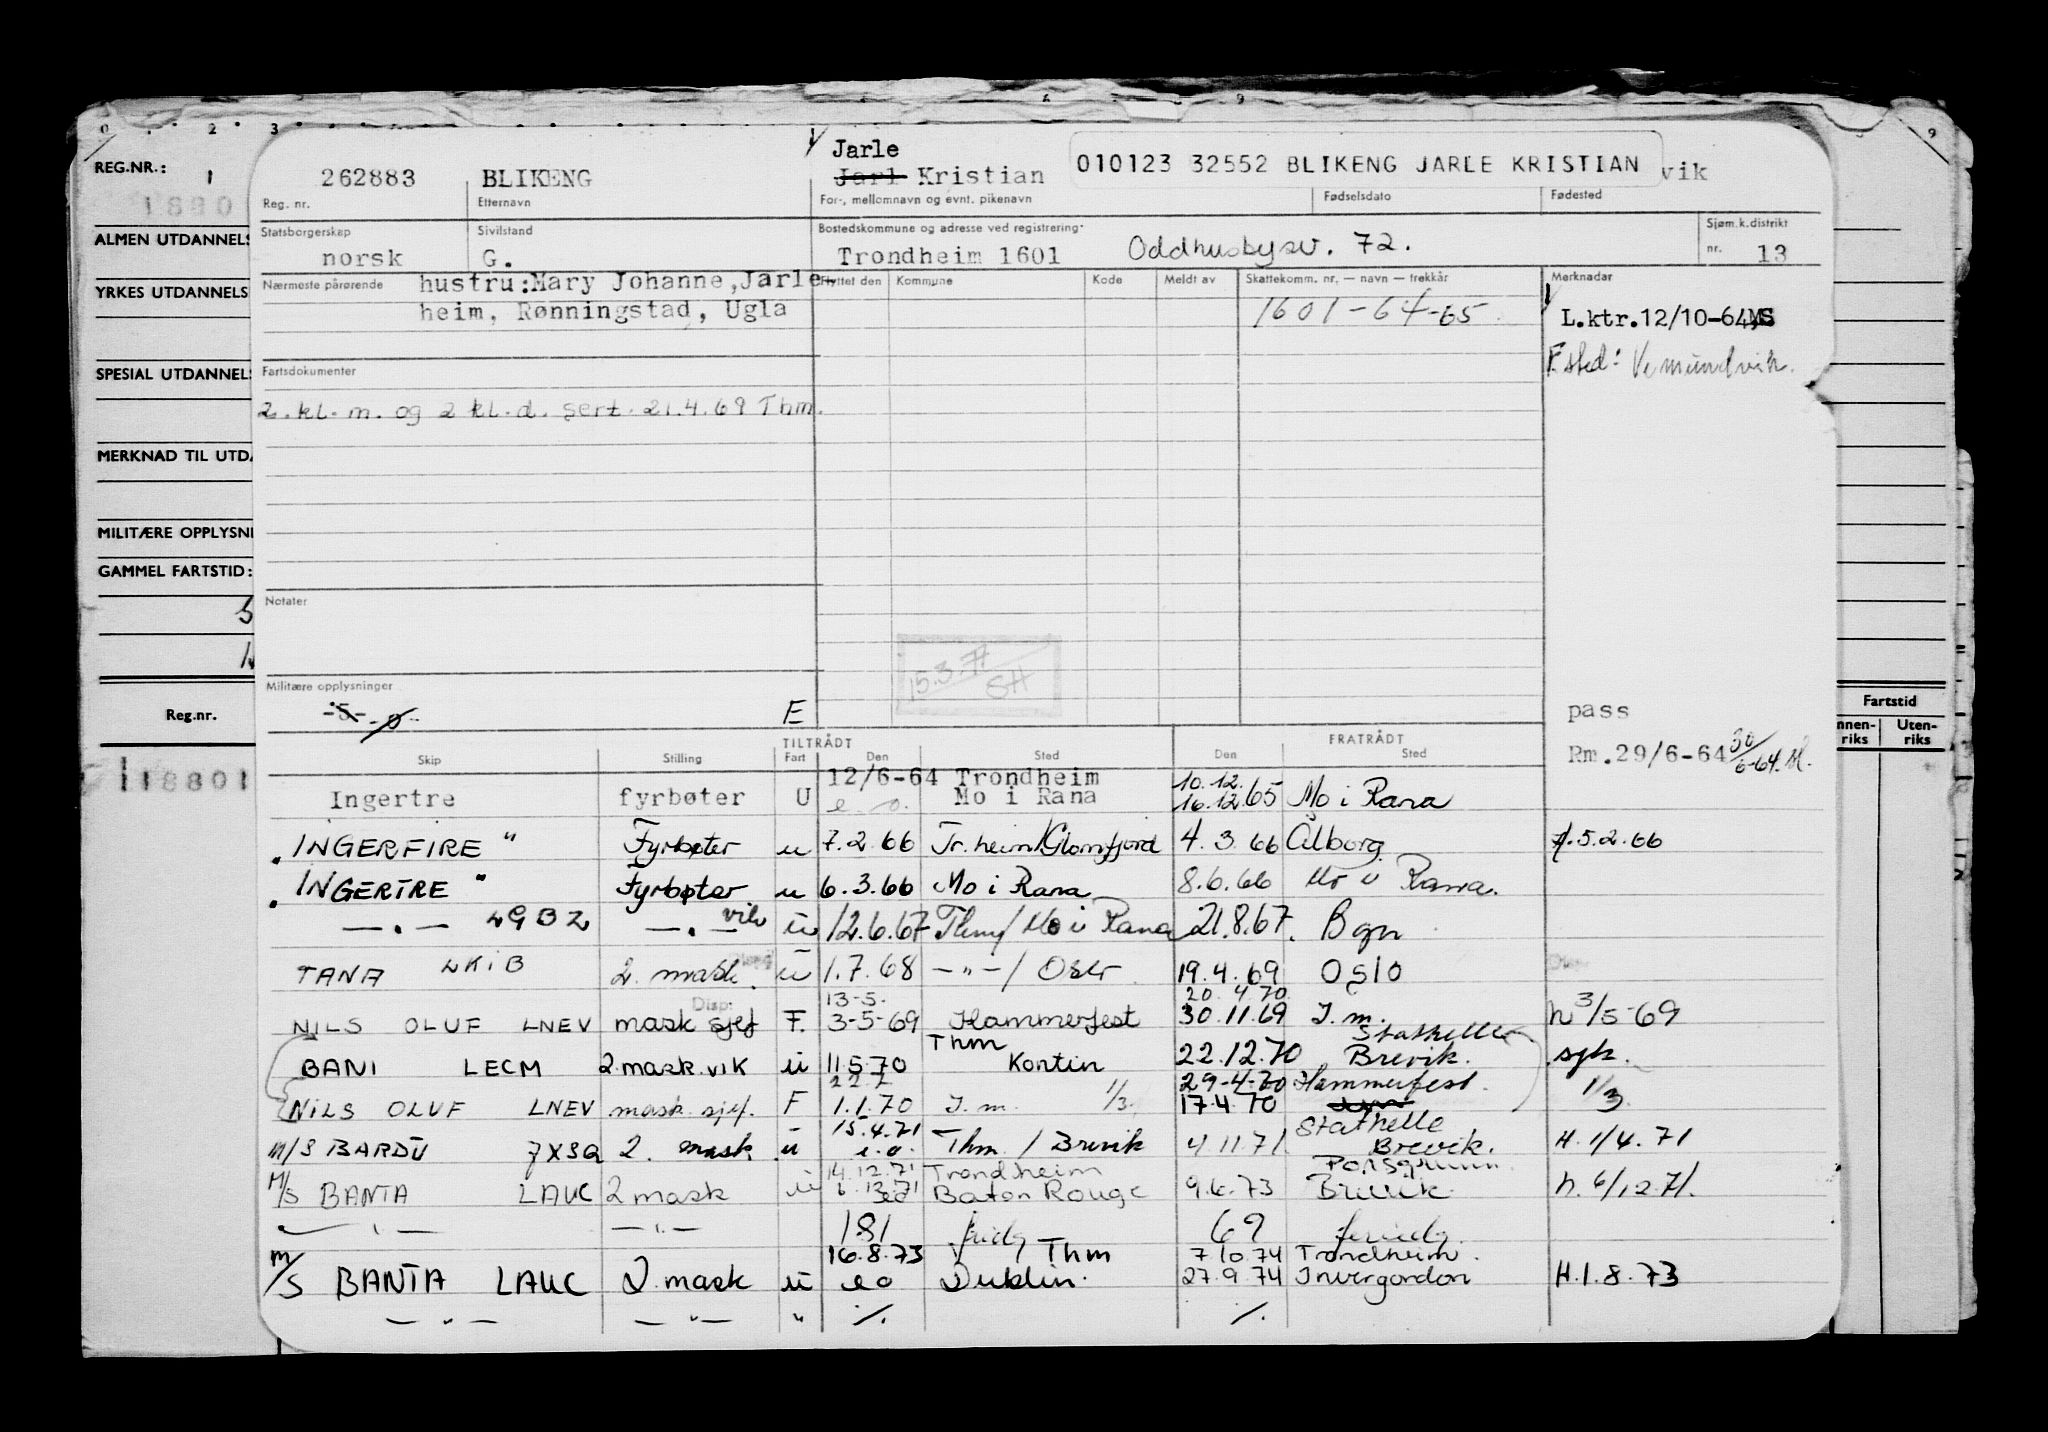 0 2 3 6 9 9
REG.NR.: 1
1880
ALMEN UTDANNELS
YRKES UTDANNELS
SPESIAL UTDANNELS
MERKNAD TIL UTDA
MILITÆRE OPPLYSNI
GAMMEL FARTSTID:
Reg.nr.
118801
Fartstid
nnen-riks Uten-riks
Jarle
262883 BLIKENG Jarl Kristian 010123 32552 BLIKENG JARLE KRISTIAN vik
Reg. nr. Etternavn For-, mellomnavn og evnt. pikenavn Fødselsdato Fødested
Statsborgerskap Sivilstand Bostedskommune og adresse ved registrering Sjøm.k.distrikt
norsk G. Trondheim 1601 Oddhusbysv. 72. nr. 13
Nærmeste pårørende hustru:Mary Johanne,Jarle Flyttet den Kommune Kode Meldt av Skattekomm. nr. — navn — trekkår Merknadar
heim, Rønningstad, Ugla 1601-64-65 L.ktr.12/10-64 MS
F.sted: Vemundvik.
Fartsdokumenter
2. kl. m. og 2 kl. d. sert. 21.4.69 Thm.
Notater
15.3.77 SH
Militære opplysninger
-5- E pass
Rm.29/6-64 30/6-64.
TILTRÅDT FRATRÅDT
Skip Stilling Fart Den Sted Den Sted
12/6-64 Trondheim 10.12.
Ingertre fyrbøter U e.o. Mo i Rana 16.12.65 Mo i Rana
"INGERFIRE" Fyrbøter u 7.2.66 Tr.heim/Glomfjord 4.3.66 Ålborg 5.2.66
"INGERTRE" Fyrbøter u 6.3.66 Mo i Rana 8.6.66 Mo i Rana.
— " — LGBZ — " — vik u 12.6.67 Thm/Mo i Rana 21.8.67. Bgn
TANA LKIB 2. mask. u 1.7.68 — " — / Oslo 19.4.69 OSLO
Disp. 13-5. 20.4.70
NILS OLUF LNEV mask sjef F. 3-5-69 Hammerfest 30.11.69 I.m. h 3/5-69
Thm Stathelle
BANI LECM 2.mask.vik u 11.5.70 Kontin 22.12.70 Brevik. syk.
22.2 29-4-70 Hammerfest.
NILS OLUF LNEV mask. sjef. F 1.1.70 I.m. 1/3. 17.4.70 1/3.
15.4.71 Stathelle
M/S BARDU JXSQ 2. mask. u e.o. Thm. / Brevik 4.11.71 Brevik. H.1/4.71
14.12.71 Trondheim Porsgrunn.
M/S BANTA LAUC 2 mask u 6.12.71 eo Baton Rouge 9.6.73 Brevik. h. 6/12.71.
— " — — " — 181 feriedg 69 feriedg.
16.8.73 Thm 7.10.74 Trondheim.
M/S BANTA LAUC 2. mask u eo Dublin. 27.9.74 Invergordon H.1.8.73
— " — — " — " ./. ./.